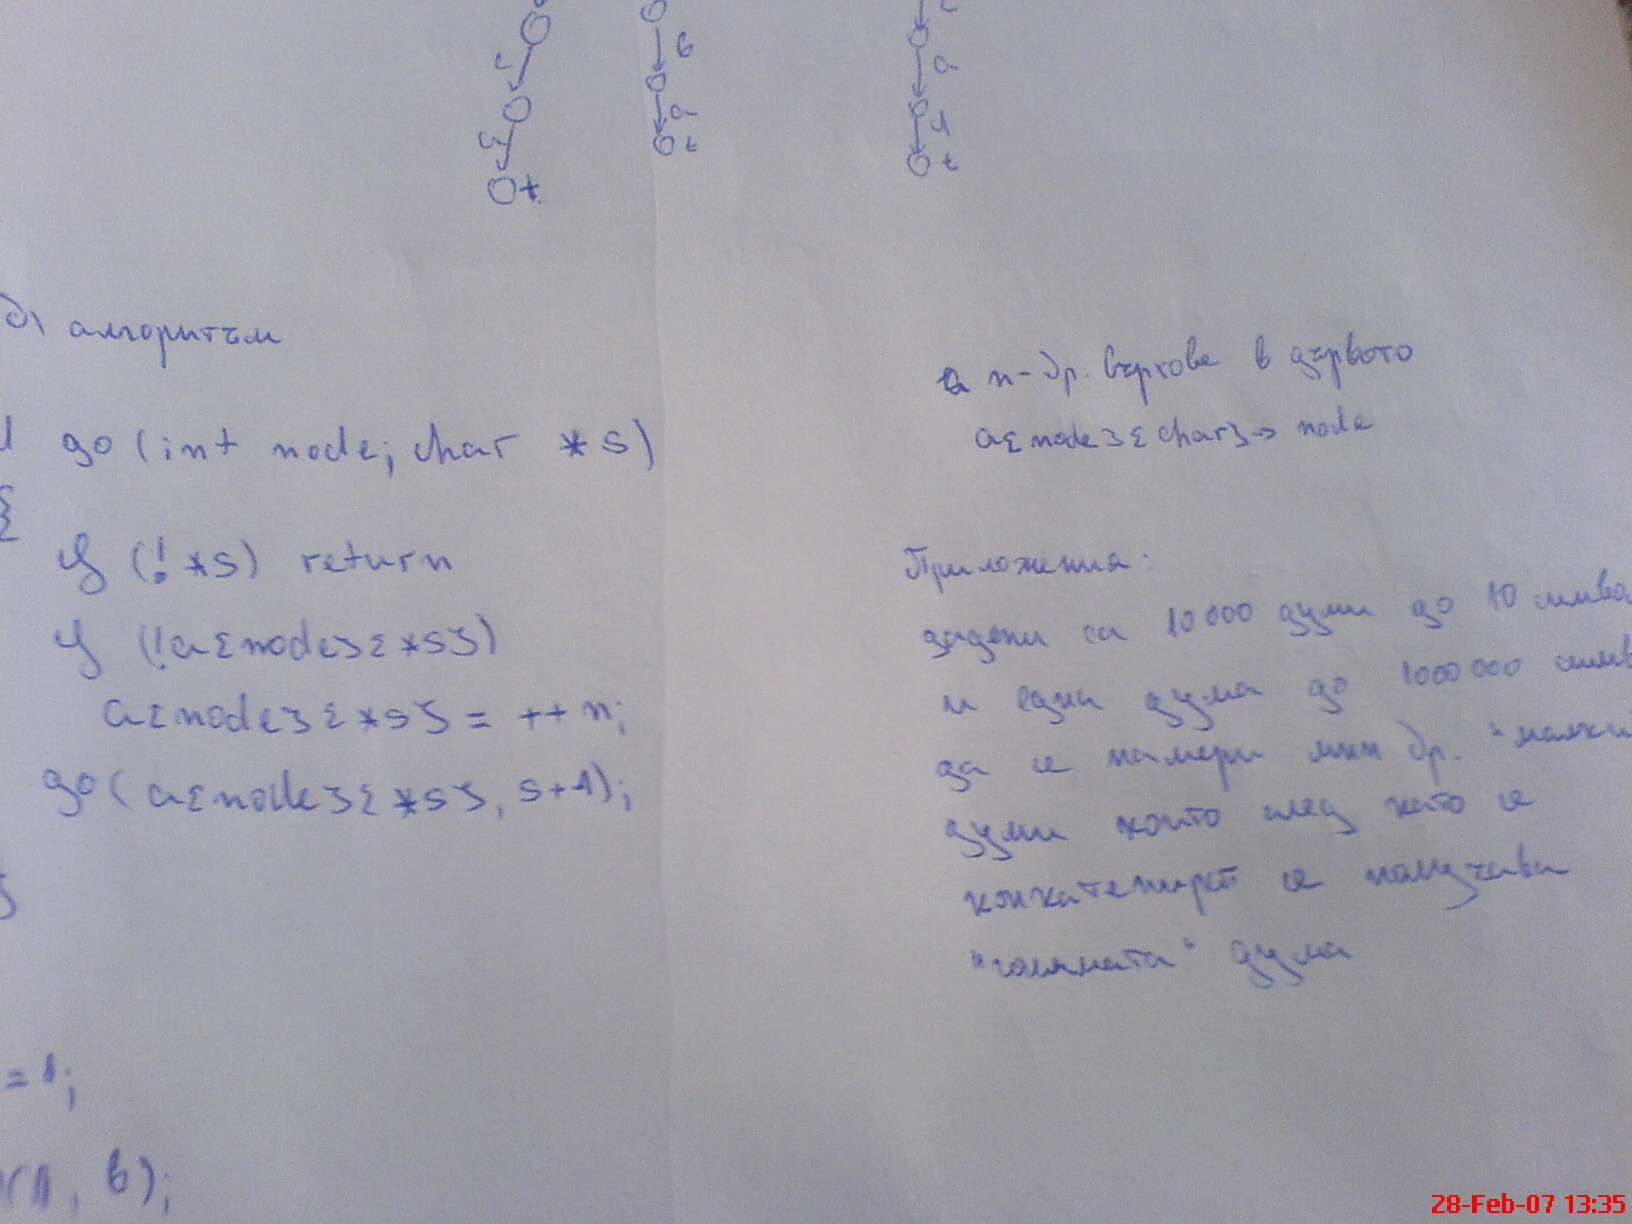 б
а
t
а
л
t
б) алгоритъм
go (int node; char *s)
{
if (! *s) return
if (!a[node][*s])
a[node][*s] = ++n;
go(a[node][*s], s+1);
}
= 1;
(1, b);
n - бр. върхове в дървото
a[node][char] -> node
Приложения:
зададени са 10 000 думи до 10 символа
и една дума до 1000 000 симв
да се намери мин бр. "малки"
думи които след като се
конкатенират се получава
"голямата" дума
28-Feb-07 13:35